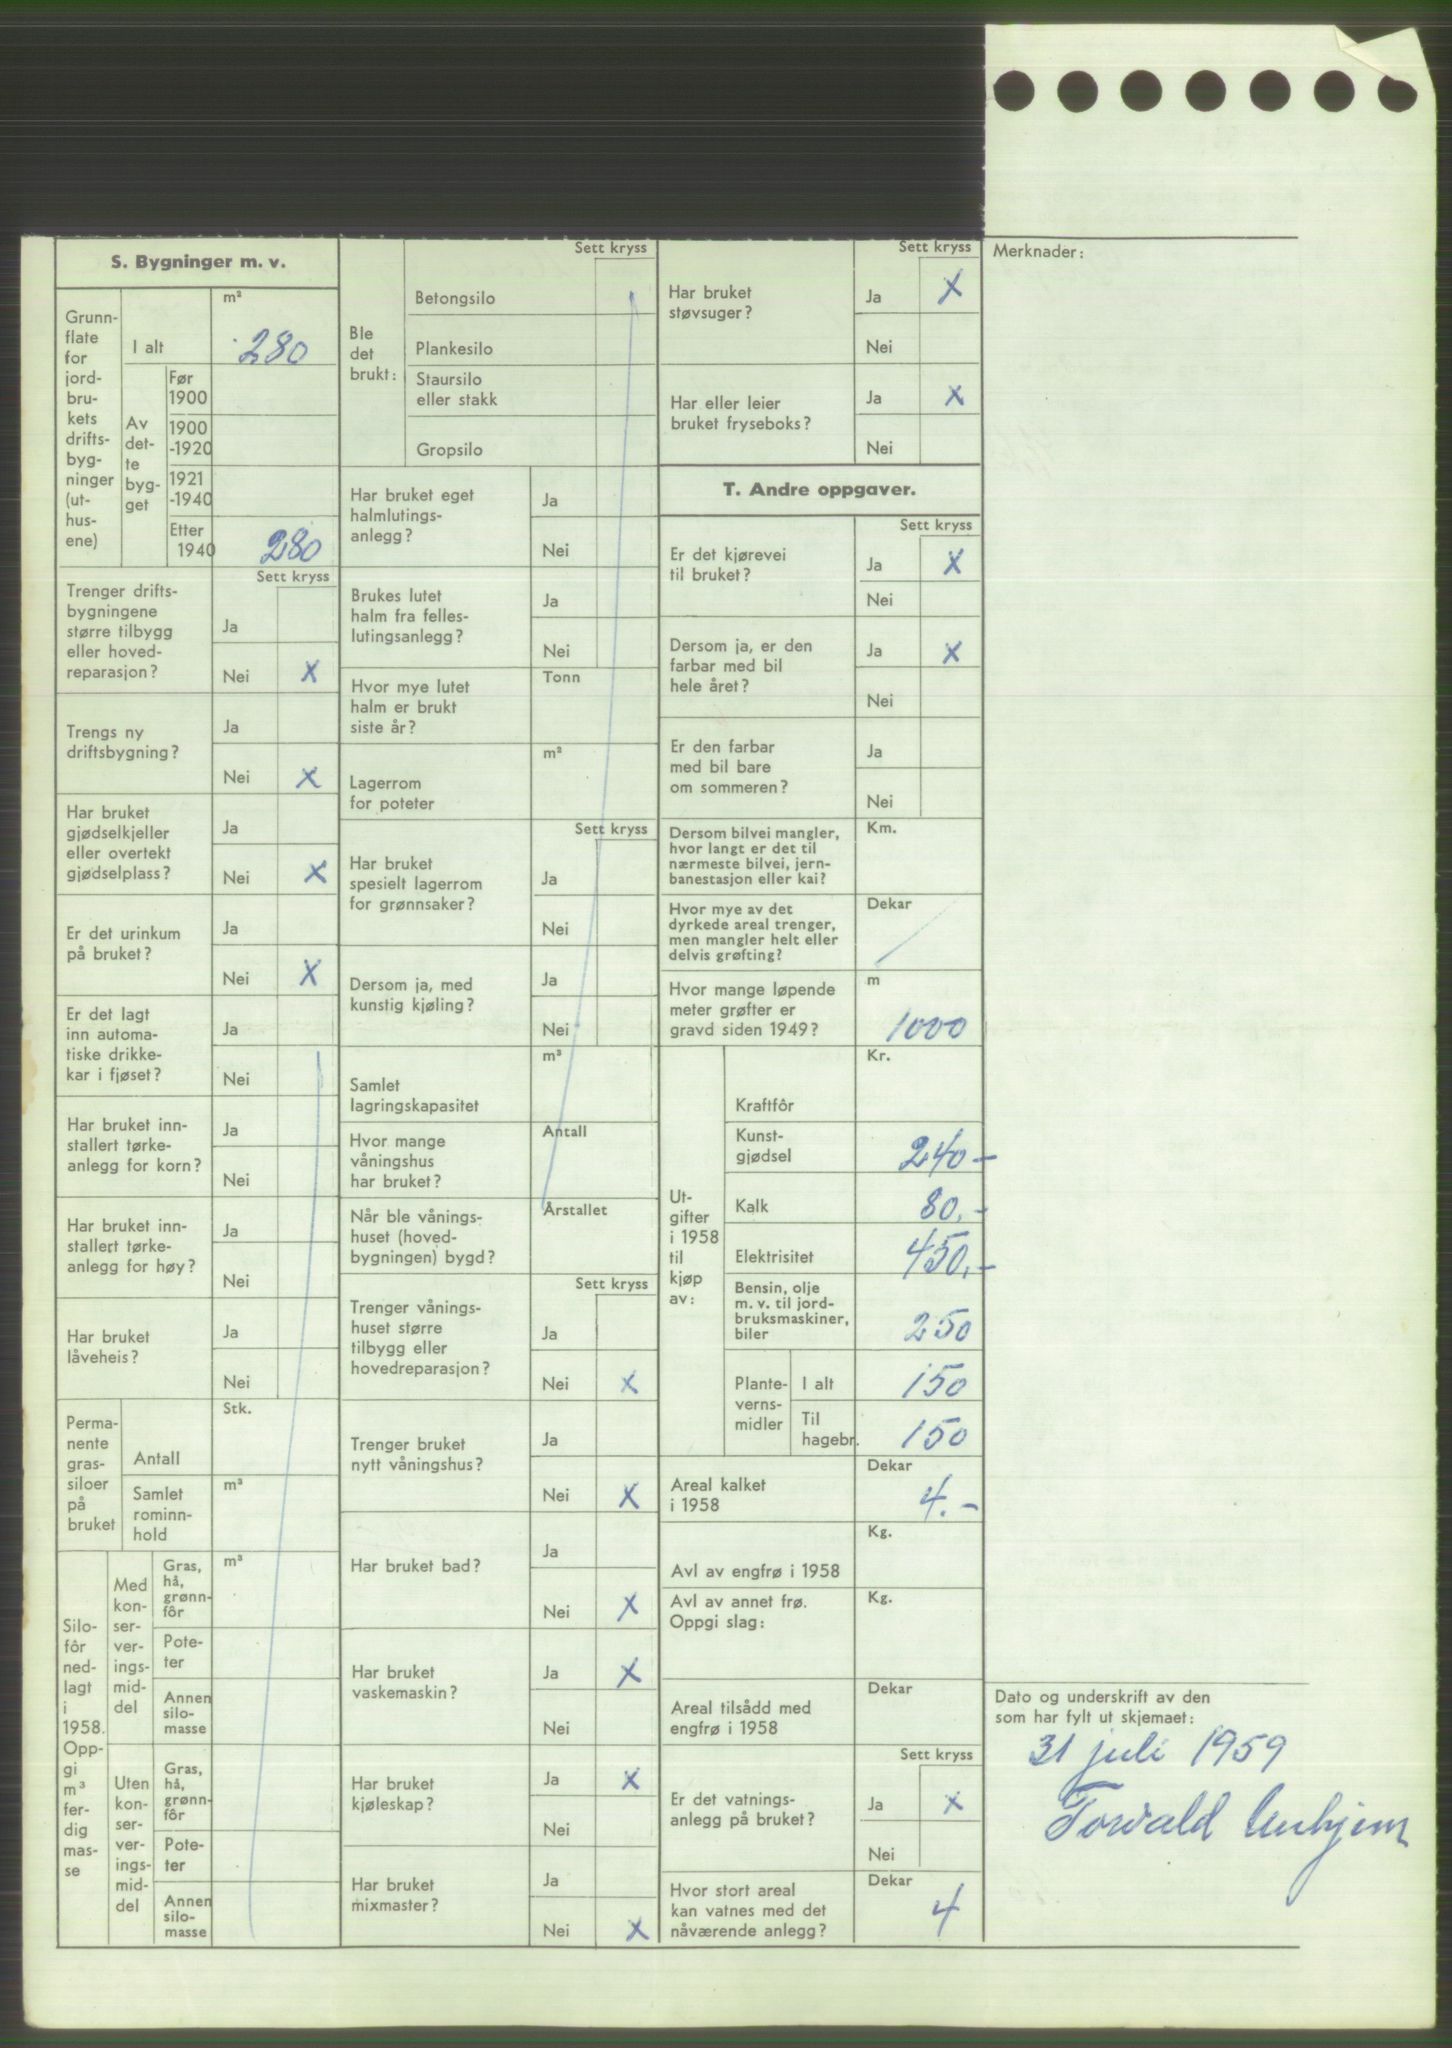 S. Bygninger m. v.
Grunn-
flate
for
jord-
bru-
kets
drifts-
byg-
ninger
(ut-
hus-
ene)
I alt
m²
280
Av
det-
te
byg-
get
Før
1900
1900
-1920
1921
-1940
Etter
1940
280
Sett kryss
Trenger drifts-
bygningene
større tilbygg
eller hoved-
reparasjon?
Ja
Nei X
Trengs ny
driftsbygning?
Ja
Nei X
Har bruket
gjødselkjeller
eller overtekt
gjødselplass?
Ja
Nei X
Er det urinkum
på bruket?
Ja
Nei X
Er det lagt
inn automa-
tiske drikke-
kar i fjøset?
Ja
Nei
Har bruket inn-
stallert tørke-
anlegg for korn?
Ja
Nei
Har bruket inn-
stallert tørke-
anlegg for høy?
Ja
Nei
Har bruket
låveheis?
Ja
Nei
Perma-
nente
gras-
siloer
på
bruket
Stk.
Antall
Samlet
rominn-
hold
m³
Silo-
fôr
ned-
lagt
i
1958.
Opp-
gi
m³
fer-
dig
mas-
se
Med
kon-
ser-
ver-
ings-
mid-
del
Gras,
hå,
grønn-
fôr
m³
Pote-
ter
Annen
silo-
masse
Uten
kon-
ser-
ver-
ings-
mid-
del
Gras,
hå,
grønn-
fôr
Pote-
ter
Annen
silo-
masse
Sett kryss
Ble
det
brukt:
Betongsilo
Plankesilo
Staursilo
eller stakk
Gropsilo
Har bruket eget
halmlutings-
anlegg?
Ja
Nei
Brukes lutet
halm fra felles-
lutingsanlegg?
Ja
Nei
Hvor mye lutet
halm er brukt
siste år?
Tonn
Lagerrom
for poteter
m²
Sett kryss
Har bruket
spesielt lagerrom
for grønnsaker?
Ja
Nei
Dersom ja, med
kunstig kjøling?
Ja
Nei
Samlet
lagringskapasitet
m³
Hvor mange
våningshus
har bruket?
Antall
Når ble vånings-
huset (hoved-
bygningen) bygd?
Årstallet
Sett kryss
Trenger vånings-
huset større
tilbygg eller
hovedreparasjon?
Ja
Nei X
Trenger bruket
nytt våningshus?
Ja
Nei X
Har bruket bad?
Ja
Nei X
Har bruket
vaskemaskin?
Ja X
Nei
Har bruket
kjøleskap?
Ja X
Nei
Har bruket
mixmaster?
Ja
Nei X
Sett kryss
Har bruket
støvsuger?
Ja X
Nei
Har eller leier
bruket fryseboks?
Ja X
Nei
T. Andre oppgaver.
Sett kryss
Er det kjørevei
til bruket?
Ja X
Nei
Dersom ja, er den
farbar med bil
hele året?
Ja X
Nei
Er den farbar
med bil bare
om sommeren?
Ja
Nei
Dersom bilvei mangler,
hvor langt er det til
nærmeste bilvei, jern-
banestasjon eller kai?
Km.
Hvor mye av det
dyrkede areal trenger,
men mangler helt eller
delvis grøfting?
Dekar
Hvor mange løpende
meter grøfter er
gravd siden 1949?
m
1000
Ut-
gifter
i 1958
til
kjøp
av:
Kr.
Kraftfôr
Kunst-
gjødsel
240-
Kalk
80.-
Elektrisitet
450.-
Bensin, olje
m. v. til jord-
bruksmaskiner,
biler
250
Plante-
verns-
midler
I alt
150
Til
hagebr.
150
Areal kalket
i 1958
Dekar
4.-
Avl av engfrø i 1958
Kg.
Avl av annet frø.
Oppgi slag:
Kg.
Areal tilsådd med
engfrø i 1958
Dekar
Sett kryss
Er det vatnings-
anlegg på bruket?
Ja X
Nei
Hvor stort areal
kan vatnes med det
nåværende anlegg?
Dekar
4
Merknader:
Dato og underskrift av den
som har fylt ut skjemaet:
31 juli 1959
Torvald